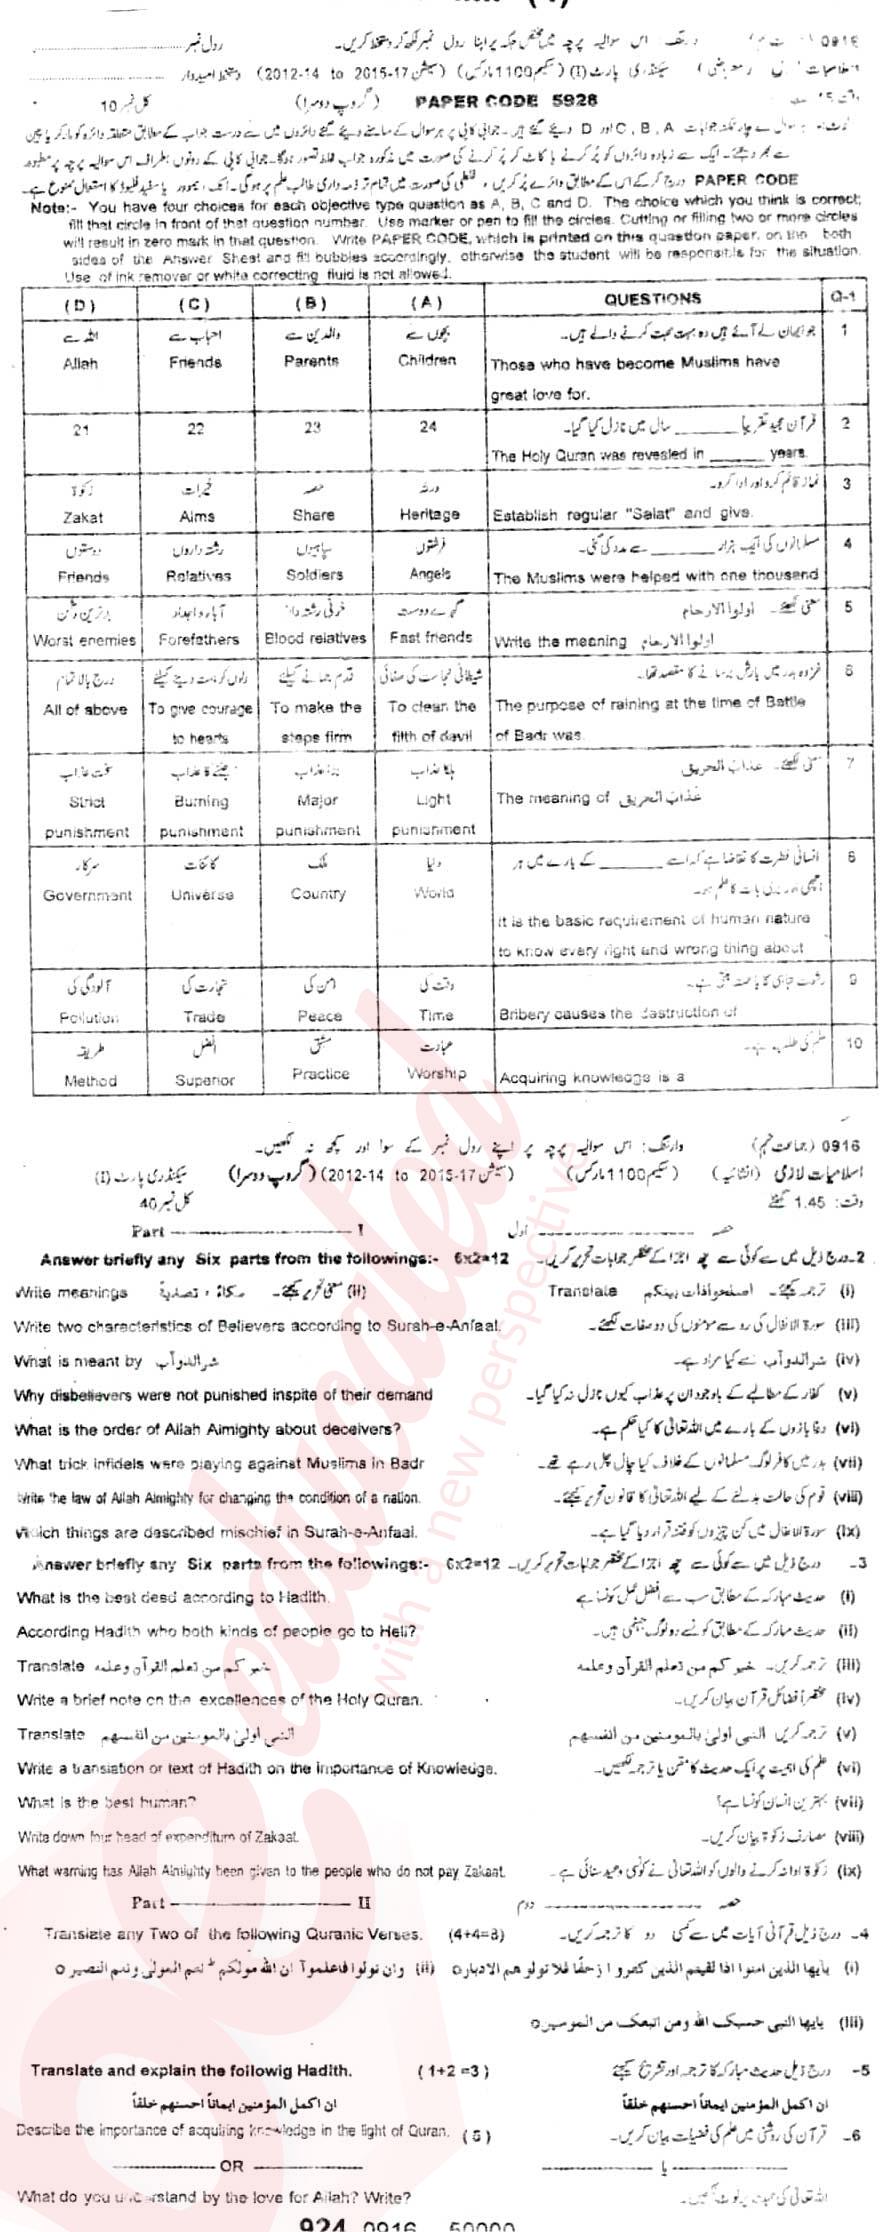 0916 وارننگ: اس سوالیہ پرچہ میں مختص جگہ پر اپنا رول نمبر لکھ کر دستخط کریں۔ رول نمبر
سیکنڈری پارٹ (I) (سکیم 1100 مارکس) (سیشن 2012-14 to 2015-17) دستخط امیدوار
PAPER CODE 5928 (گروپ دوسرا) کل نمبر 10
PAPER CODE
Note:- You have four choices for each objective type question as A, B, C and D. The choice which you think is correct;
fill that circle in front of that question number. Use marker or pen to fill the circles. Cutting or filling two or more circles
will result in zero mark in that question. Write PAPER CODE, which is printed on this question paper, on the both
sides of the Answer Sheet and fill bubbles accordingly, otherwise the student will be responsible for the situation.
Use of ink remover or white correcting fluid is not allowed.
(D) (C) (B) (A) QUESTIONS Q-1
اللہ سے احباب سے والدین سے بچوں سے جو ایمان لے آئے ہیں وہ بہت محبت کرنے والے ہیں۔ 1
Allah Friends Parents Children Those who have become Muslims have
great love for.
21 22 23 24 قرآن مجید تقریباً ______ سال میں نازل کیا گیا۔ 2
The Holy Quran was revealed in ______ years.
زکوٰۃ خیرات حصہ ورثہ نماز قائم کرو اور ادا کرو۔ 3
Zakat Alms Share Heritage Establish regular "Salat" and give.
دوستوں رشتہ داروں سپاہیوں فرشتوں مسلمانوں کی ایک ہزار ______ سے مدد کی گئی۔ 4
Friends Relatives Soldiers Angels The Muslims were helped with one thousand
بدترین دشمن آباء و اجداد خونی رشتہ دار گہرے دوست معنی لکھئے۔ اولوا الارحام 5
Worst enemies Forefathers Blood relatives Fast friends Write the meaning اولوا الارحام
درج بالا تمام دلوں کو ہمت دینے کیلئے قدم جمانے کیلئے شیطانی نجاست کی صفائی غزوہ بدر میں بارش برسانے کا مقصد تھا۔ 6
All of above To give courage To make the To clean the The purpose of raining at the time of Battle
to hearts steps firm filth of devil of Badr was.
سخت عذاب جلنے کا عذاب بڑا عذاب ہلکا عذاب معنی لکھئے۔ عذاب الحریق 7
Strict Burning Major Light The meaning of عَذَابَ الحریق
punishment punishment punishment punishment
سرکار کائنات ملک دنیا انسانی فطرت کا تقاضا ہے کہ اسے ______ کے بارے میں ہر 8
Government Universe Country World اچھی اور بری بات کا علم ہو۔
It is the basic requirement of human nature
to know every right and wrong thing about
آلودگی کی تجارت کی امن کی وقت کی رشوت تباہی کا باعث بنتی ہے۔ 9
Pollution Trade Peace Time Bribery causes the destruction of
طریقہ افضل مشق عبادت علم کی طلب ہے۔ 10
Method Superior Practice Worship Acquiring knowledge is a
0916 (جماعت نہم) وارننگ: اس سوالیہ پرچہ پر اپنے رول نمبر کے سوا اور کچھ نہ لکھیں۔
اسلامیات لازمی (انشائیہ) (سکیم 1100 مارکس) (سیشن 2012-14 to 2015-17) (گروپ دوسرا) سیکنڈری پارٹ (I)
وقت: 1.45 گھنٹے کل نمبر 40
Part I حصہ اول
Answer briefly any Six parts from the followings:- 6x2=12 2۔ درج ذیل میں سے کوئی سے چھ اجزا کے مختصر جوابات تحریر کریں۔
Write meanings مکاءً ، تصدیۃً (ii) معنی تحریر کیجئے۔ Translate (i) ترجمہ کیجئے۔ اصلحوا ذات بینکم
Write two characteristics of Believers according to Surah-e-Anfaal. (iii) سورۃ الانفال کی رو سے مومنوں کی دو صفات لکھئے۔
What is meant by شر الدوآب (iv) شر الدوآب سے کیا مراد ہے۔
Why disbelievers were not punished inspite of their demand (v) کفار کے مطالبے کے باوجود ان پر عذاب کیوں نازل نہ کیا گیا۔
What is the order of Allah Almighty about deceivers? (vi) دغا بازوں کے بارے میں اللہ تعالیٰ کا کیا حکم ہے۔
What trick infidels were playing against Muslims in Badr (vii) بدر میں کافر لوگ مسلمانوں کے خلاف کیا چال چل رہے تھے۔
Write the law of Allah Almighty for changing the condition of a nation. (viii) قوم کی حالت بدلنے کے لیے اللہ تعالیٰ کا قانون تحریر کیجئے۔
Which things are described mischief in Surah-e-Anfaal. (ix) سورۃ الانفال میں کن چیزوں کو فتنہ قرار دیا گیا ہے۔
Answer briefly any Six parts from the followings:- 6x2=12 3۔ درج ذیل میں سے کوئی سے چھ اجزا کے مختصر جوابات تحریر کریں۔
What is the best deed according to Hadith. (i) حدیث مبارکہ کے مطابق سب سے افضل عمل کونسا ہے
According Hadith who both kinds of people go to Hell? (ii) حدیث مبارکہ کے مطابق کونسے دو لوگ جہنمی ہیں۔
Translate خیر کم من تعلم القرآن وعلمه (iii) ترجمہ کریں۔ خیر کم من تعلم القرآن وعلمه
Write a brief note on the excellences of the Holy Quran. (iv) مختصراً فضائل قرآن بیان کریں۔
Translate النبی اولیٰ بالمومنین من انفسهم (v) ترجمہ کریں النبی اولیٰ بالمومنین من انفسهم
Write a translation or text of Hadith on the importance of Knowledge. (vi) علم کی اہمیت پر ایک حدیث کا متن یا ترجمہ لکھیں۔
What is the best human? (vii) بہترین انسان کونسا ہے؟
Write down four head of expenditum of Zakaat. (viii) مصارف زکوٰۃ بیان کریں۔
What warning has Allah Almighty been given to the people who do not pay Zakaat. (ix) زکوٰۃ ادا نہ کرنے والوں کو اللہ تعالیٰ نے کونسی وعید سنائی ہے۔
Part II حصہ دوم
Translate any Two of the following Quranic Verses. (4+4=8) 4۔ درج ذیل قرآنی آیات میں سے کسی دو کا ترجمہ کریں۔
(i) یایها الذین امنوا اذا لقیتم الذین کفروا زحفًا فلا تولو هم الادبار○ (ii) وان تولوا فاعلموآ ان الله مولکم ط نعم المولیٰ ونعم النصیر○
(iii) یایها النبی حسبک الله ومن اتبعک من المومنین○
Translate and explain the followig Hadith. (1+2=3) 5۔ درج ذیل حدیث مبارکہ کا ترجمہ اور تشریح کیجئے
ان اکمل المؤمنین ایماناً احسنهم خلقاً ان اکمل المؤمنین ایماناً احسنهم خلقاً
Describe the importance of acquiring knowledge in the light of Quran. (5) 6۔ قرآن کی روشنی میں علم کی فضیلت بیان کریں۔
OR یا
What do you understand by the love for Allah? Write? اللہ تعالیٰ کی محبت پر نوٹ لکھیں۔
924 0916 50000
educated
with a new perspective